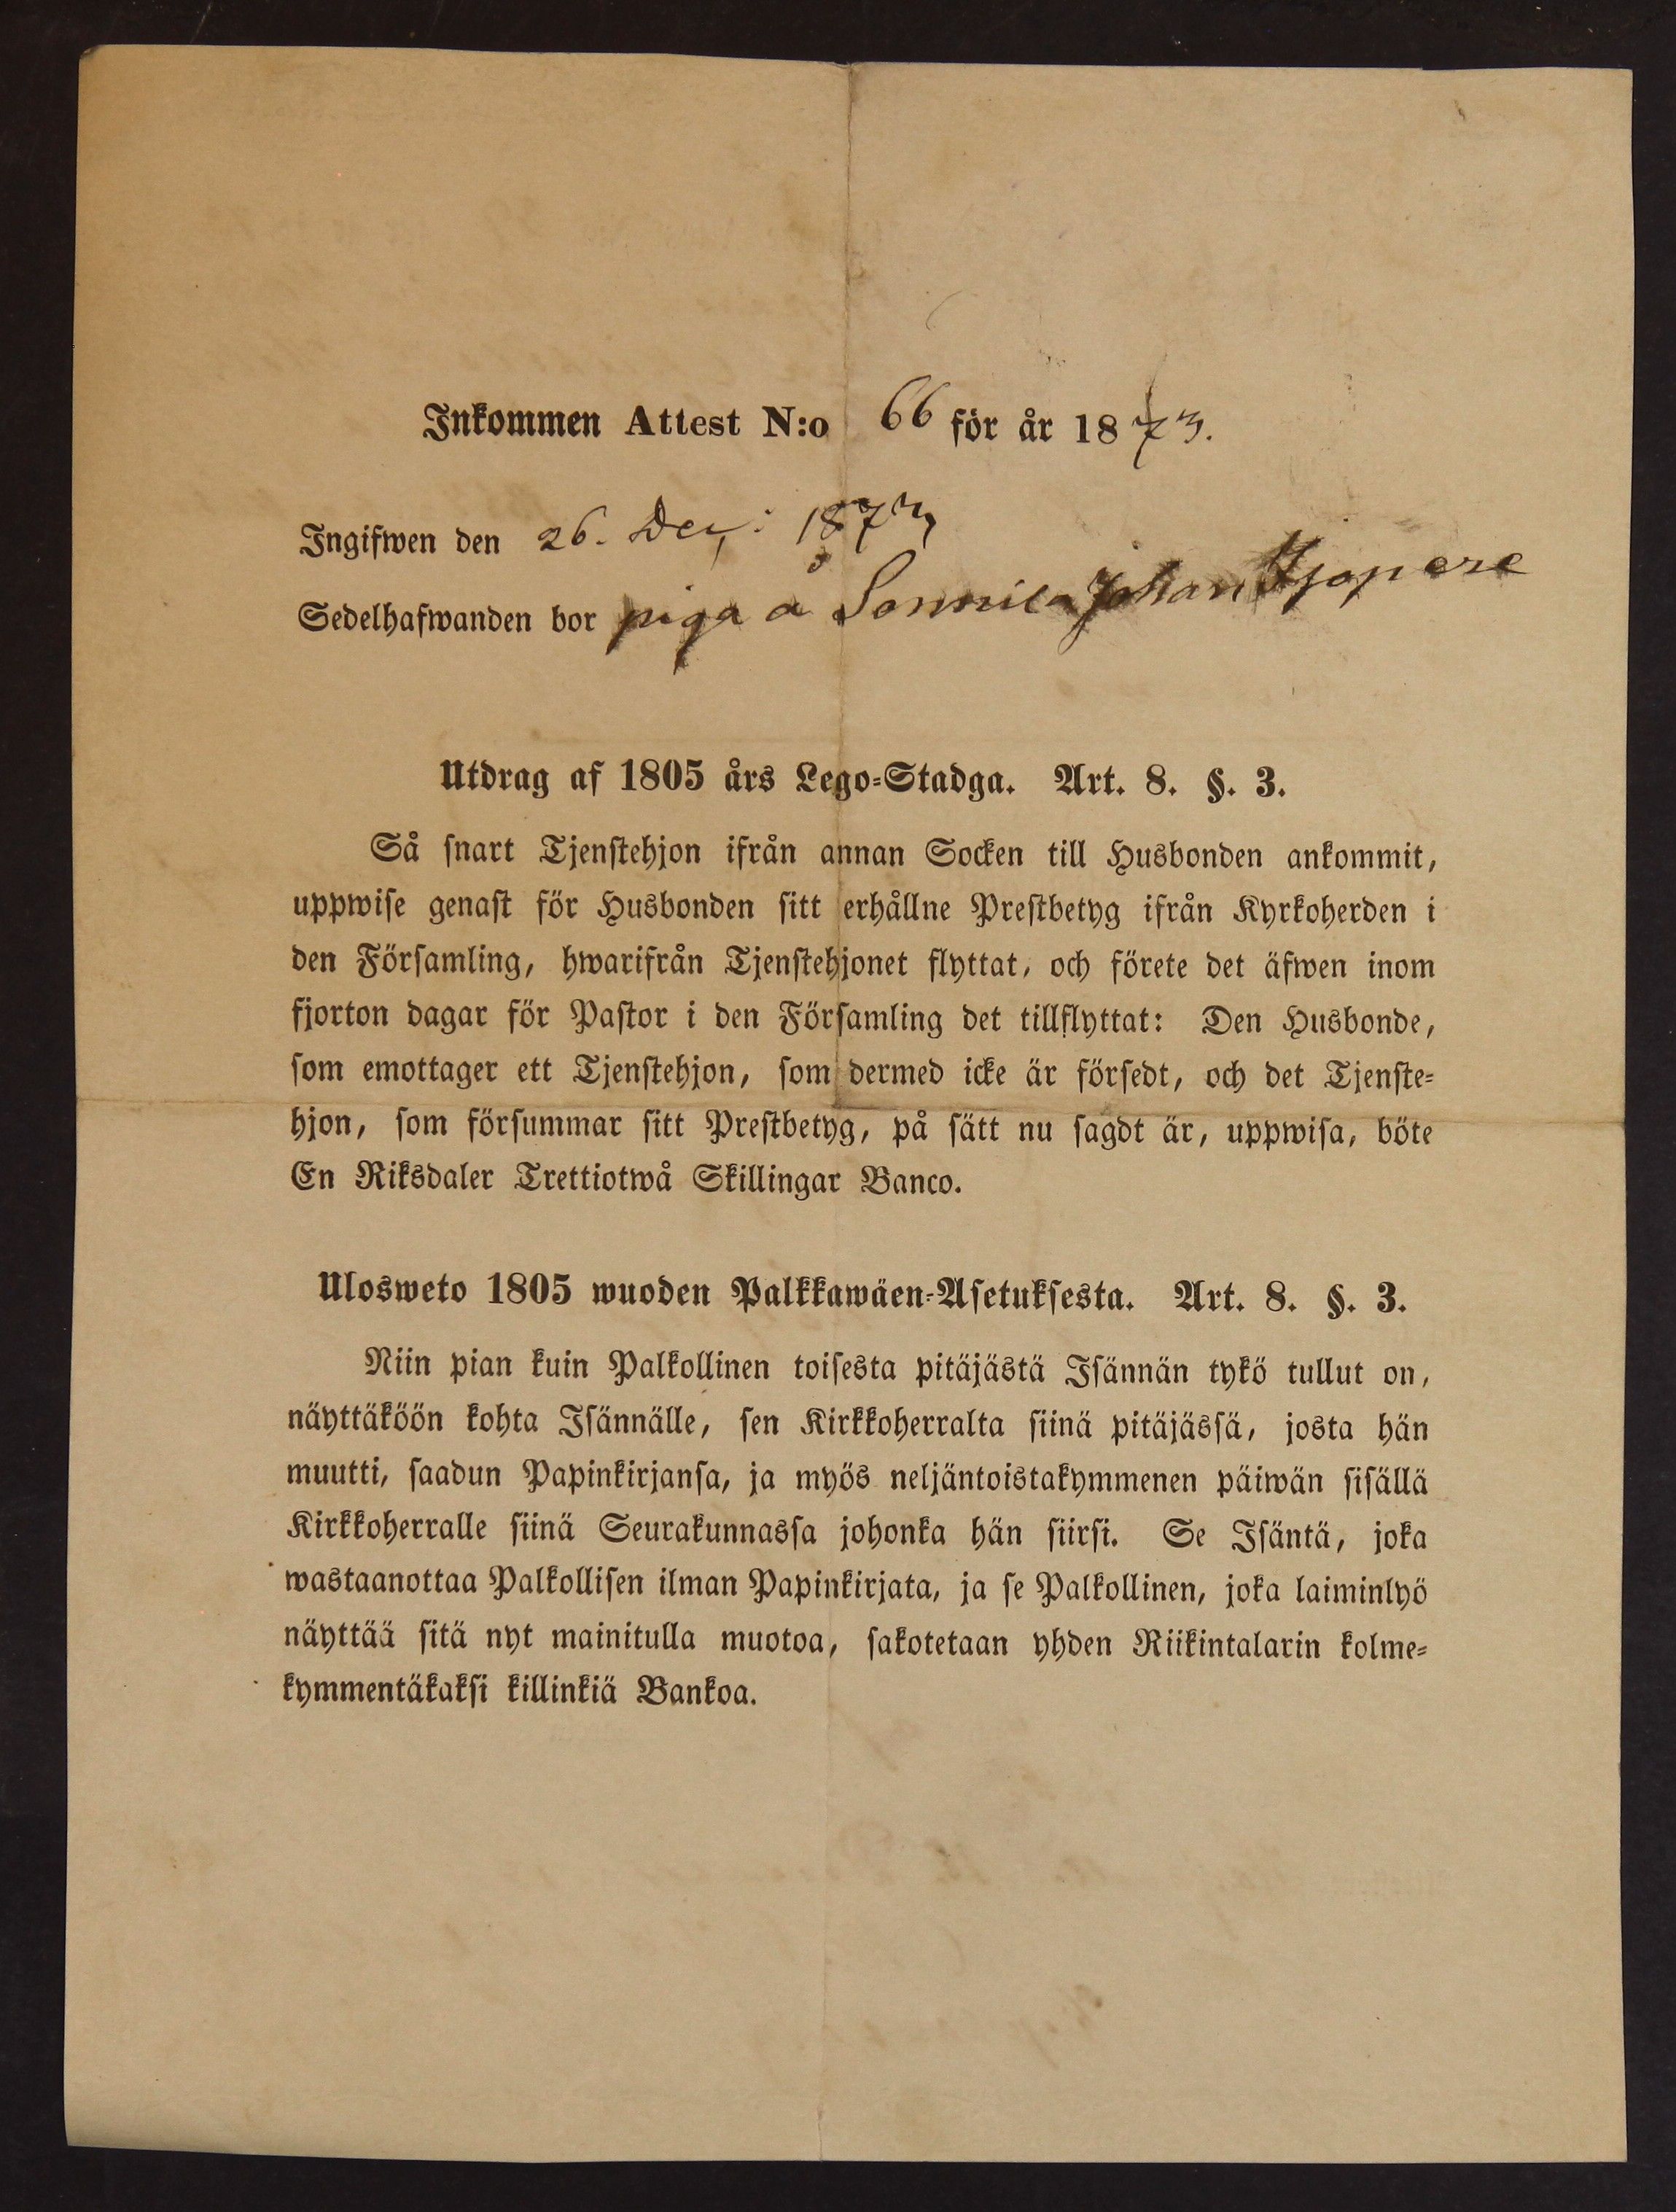 Inkommen Attest N:o 66 för år 1873.
Ingifwen den 26. Dec: 1873
Sedelhafwanden bor piga å Sonnila Johan
Utdrag af 1805 års Lego-Stadga. Art. 8. §. 3.
Så snart Tjenstehjon ifrån annan Socken till Husbonden ankommit,
uppwise genast för Husbonden sitt erhållne Prestbetyg ifrån Kyrkoherden i
den Församling, hwarifrån Tjenstehjonet flyttat, och förete det äfwen inom
fjorton dagar för Pastor i den Församling det tillflyttat: Den Husbonde,
som emottager ett Tjenstehjon, som dermed icke är försedt, och det Tjenste-
hjon, som försummar sitt Prestbetyg, på sätt nu sagdt är, uppwisa, böte
En Riksdaler Trettiotwå Skillingar Banco.
Ulosweto 1805 wuoden Palkkawäen-Asetuksesta. Art. 8. §. 3.
Niin pian kuin Palkollinen toisesta pitäjästä Isännän tykö tullut on,
näyttäköön kohta Isännälle, sen Kirkkoherralta siinä pitäjässä, josta hän
muutti, saadun Papinkirjansa, ja myös neljäntoistakymmenen päiwän sisällä
Kirkkoherralle siinä Seurakunnassa johonka hän siirsi. Se Isäntä, joka
wastaanottaa Palkollisen ilman Papinkirjata, ja se Palkollinen, joka laiminlyö
näyttää sitä nyt mainitulla muotoa, sakotetaan yhden Riikintalarin kolme-
kymmentäkaksi killinkiä Bankoa.